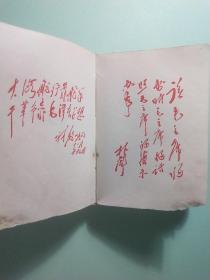 大海航行靠舵手
干革命靠毛泽东思想
林彪
读毛主席的
书听毛主席的话
照毛主席的指示
办事
林彪